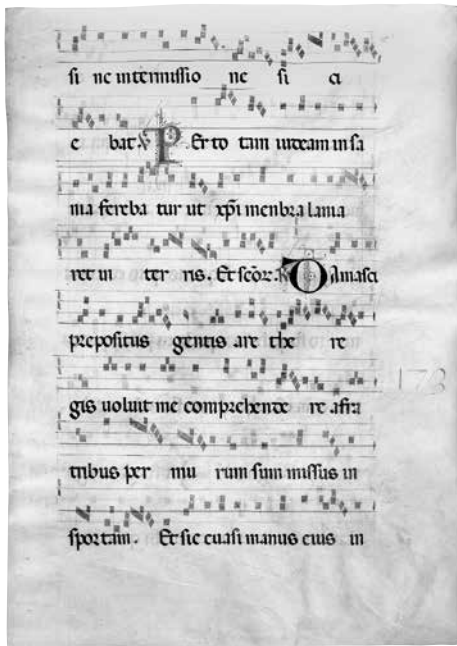 si ne intermissio ne si ci
e bat ℣ PEr to tam iudeam in sa
nia fereba tur ut xp̄i menbra lania
ret in ter ris. Et sc̄oꝝ. ℟ DAmasci
prepositus gentis are the re
gis uoluit me comprehende re a fra
tribus per mu rum sum missus in
sportam. Et sic euasi manus eius in
173